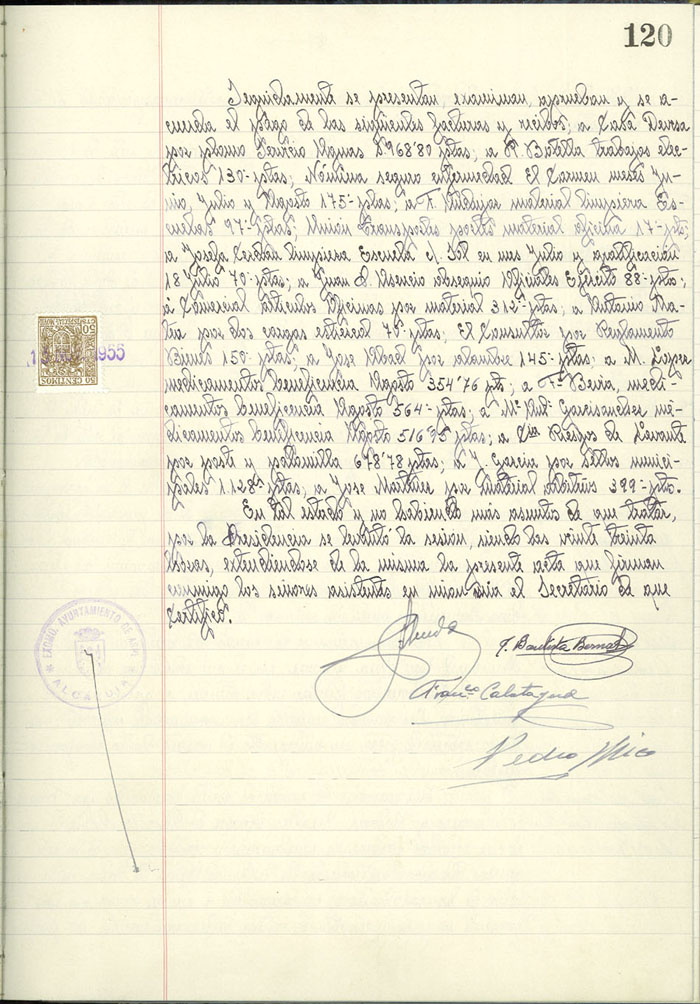 120
Seguidamente se presentan, examinan, aprueban y se a-
cuerda el pago de las siguientes facturas y recibos; a Casa Devesa
por plomo Servicio Aguas 5.968'80 ptas; a R. Botella trabajos eléc-
tricos 130- ptas; Nómina seguro enfermedad El Carmen meses Ju-
nio, Julio y Agosto 175'- ptas; a F. material limpieza Es-
cuelas 97'- ptas; Unión Transportes portes material oficina 17'- pts;
a Josefa Cerdán limpieza Escuela c/. Sol en mes Julio y gratificación
18 Julio 70'- ptas; a Juan B. Asencio obsequio Oficiales Ejército 88- ptas;
a Comercial Artículos Oficinas por material 312'- ptas; a Antonio Ma-
por dos cargas estiércol 75- ptas; El Consultor por Reglamento
Bienes 150- ptas; a Jose Abad por alambre 145- ptas; a M. López
medicamentos beneficencia Agosto 354'76 pts; a Fº medi-
camentos beneficencia Agosto 564'- ptas; a Mª Antª Garcisanchez mé-
dicamentos beneficencia Agosto 516'95 ptas; a Cía Riegos de Levante
por poste y palomilla 678'78 ptas; a J. García por Sellos munici-
pales ptas; a Jose Martinez por material arbitrios 399- pts.
En tal estado y no habiendo más asuntos de que tratar,
por la Presidencia se levantó la sesion, siendo las veinte treinta
horas, extendiendose de la misma la presente acta que firman
conmigo los señores asistentes en el Secretario de que
Certifico.
50 CENTIMOS
1955
EXCMO. AYUNTAMIENTO DE
ALCALDIA
J. Bautista Bernab
Franco. Calatayud
Pedro Mico